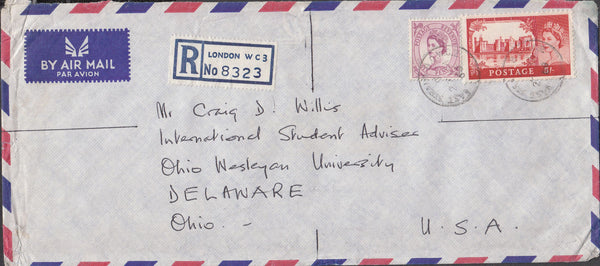 BY AIR MAIL
PAR AVION
R
LONDON W C 3
No 8323
POSTAGE
5/-
Mr Craig D. Willis
International Student Adviser
Ohio Wesleyan University
DELAWARE
Ohio. -
U. S. A.